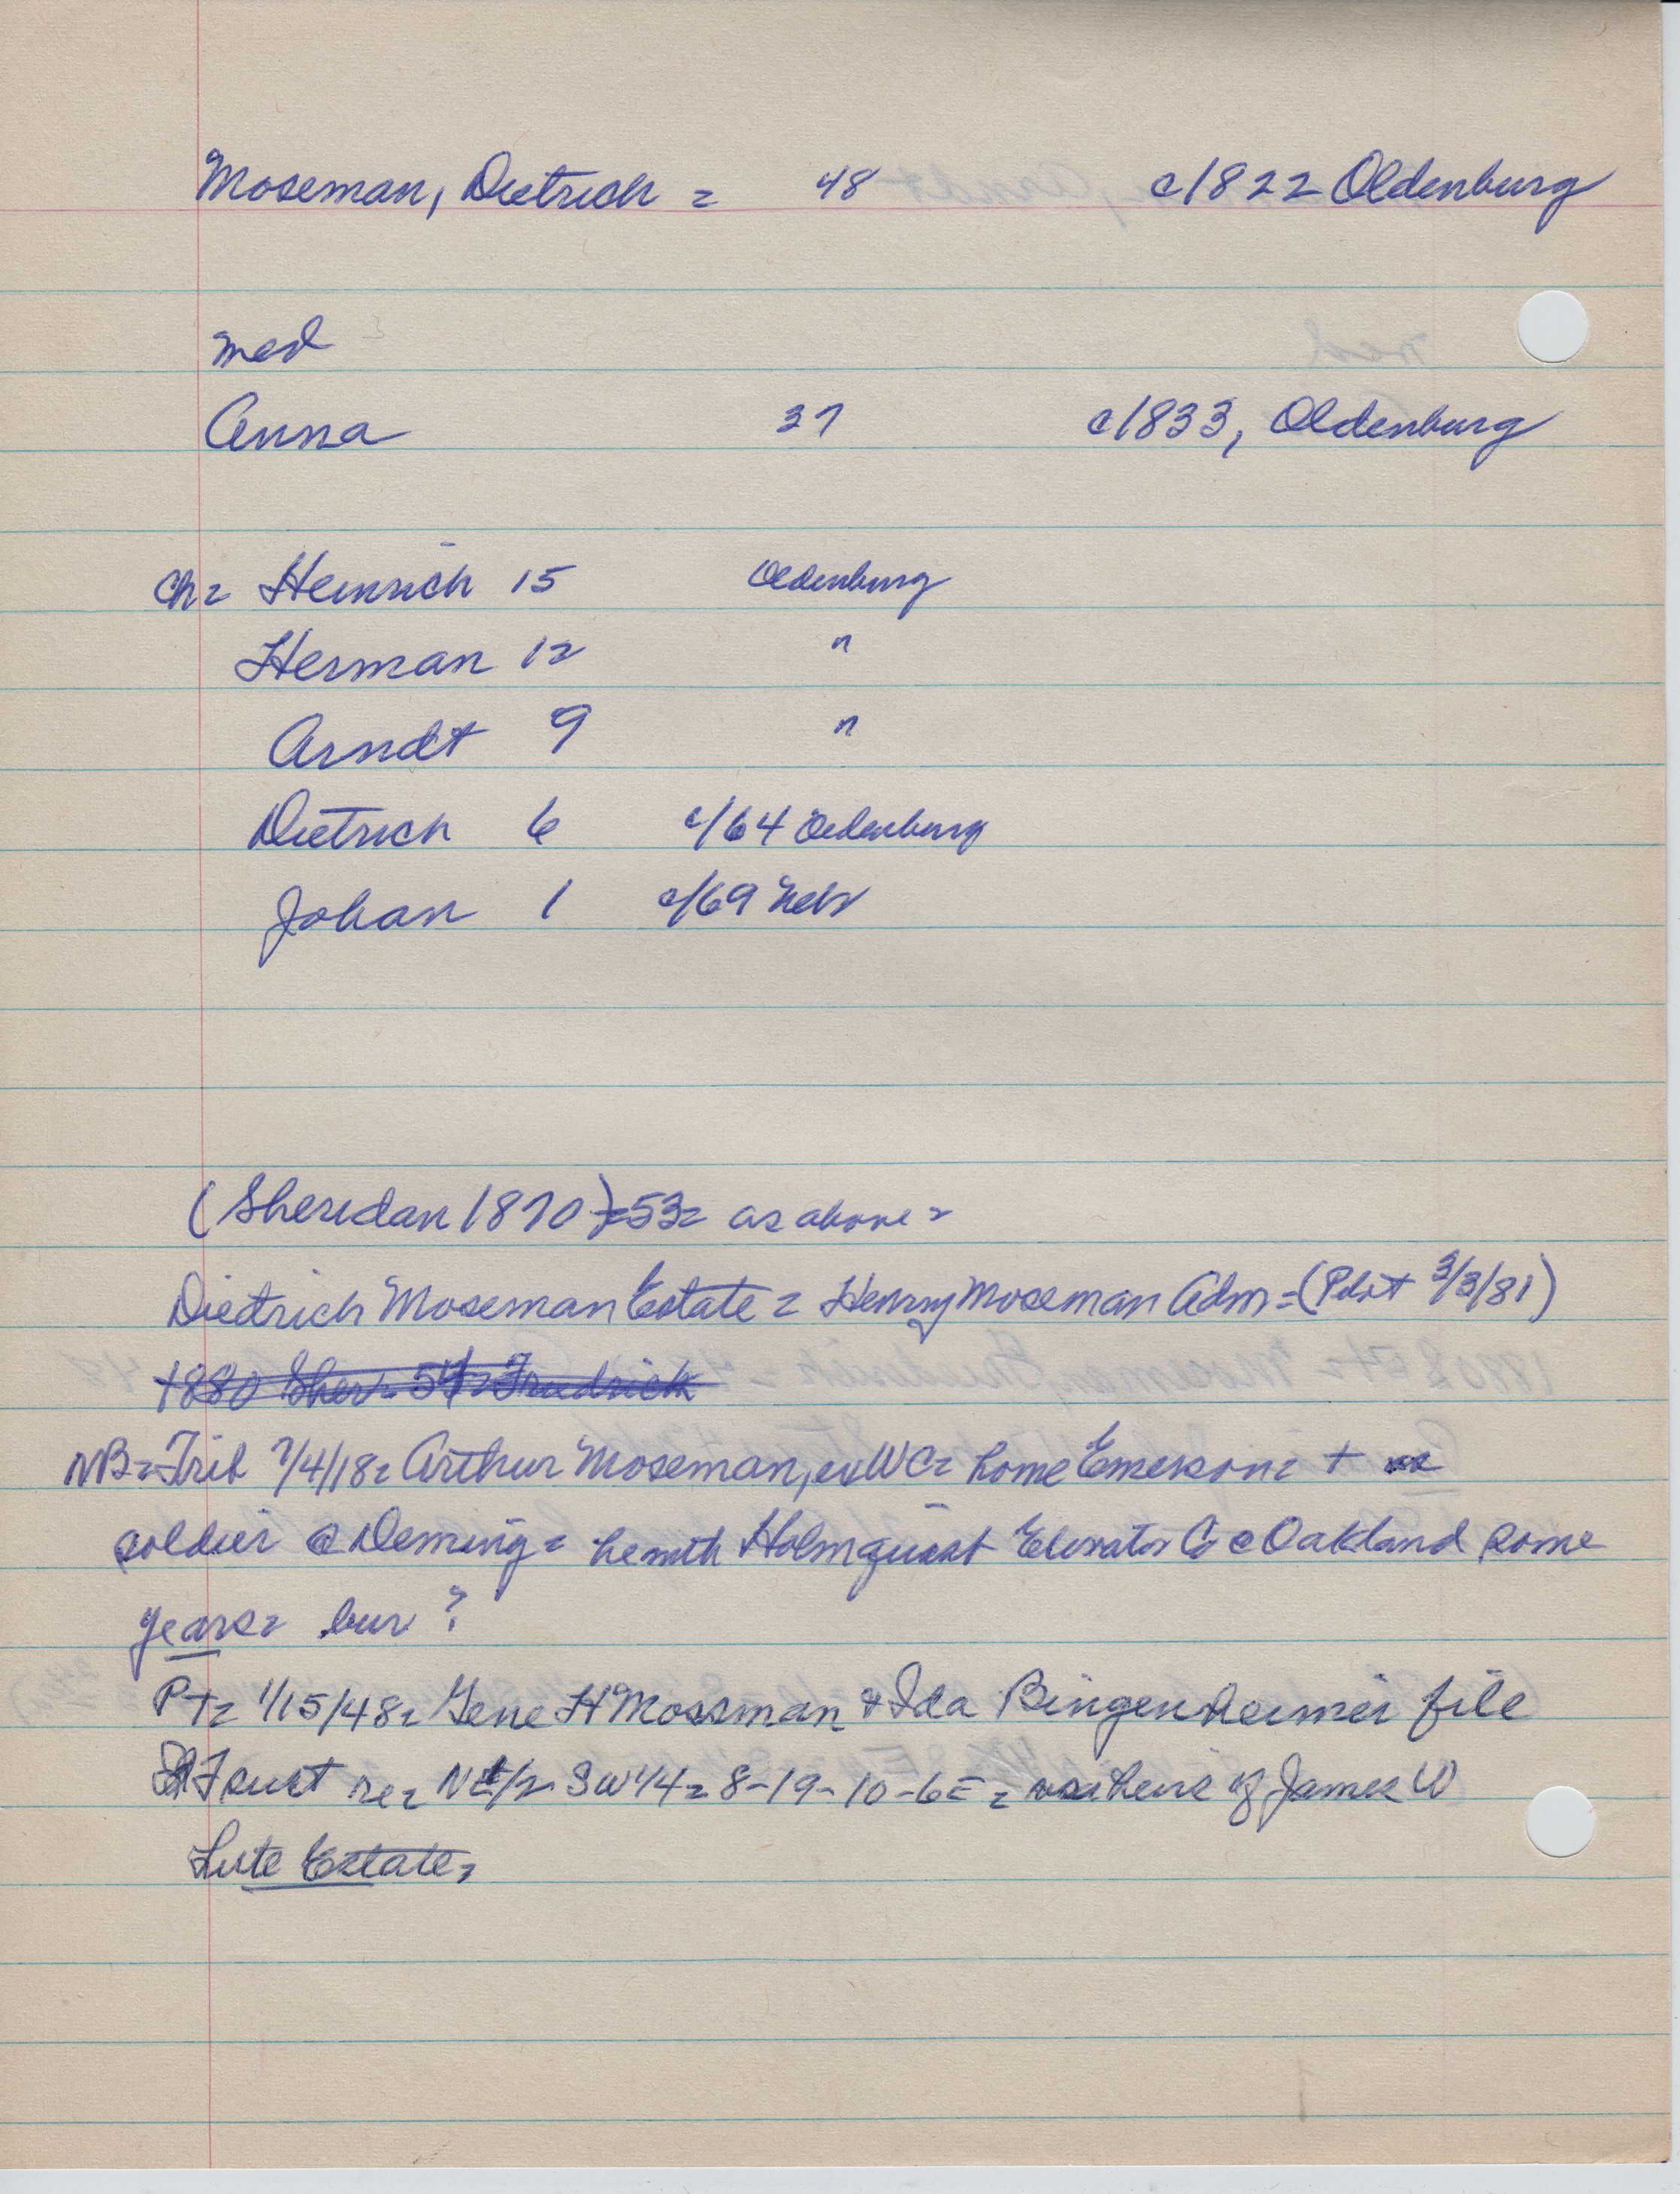 Moseman, Dietrich = 48 c/1822 Oldenburg
med
Anna 37 c/1833, Oldenburg
Ch = Heinrich 15 Oldenburg
Herman 12 "
Arndt 9 "
Dietrich 6 c/64 Oldenburg
Johan 1 c/69 Nebr
(Sheridan 1870) = 53 = as above =
Diedrich Moseman Estate = Henry Moseman Adm = (Pilot 3/3/81)
1880 Sher = 54 = Fredrick
NB = Trib 7/4/18 = Arthur Moseman, ex WC = home Emerson = +
soldier @ Deming = he mth Holmquist Elevator Co @ Oakland some
years = bur ?
P+ = 1/15/48 = Gene H Mossman & Ida Bingenheimer file
suit re = SW 1/4 = 8-19-10-6E = heirs of James W
Lute Estate =